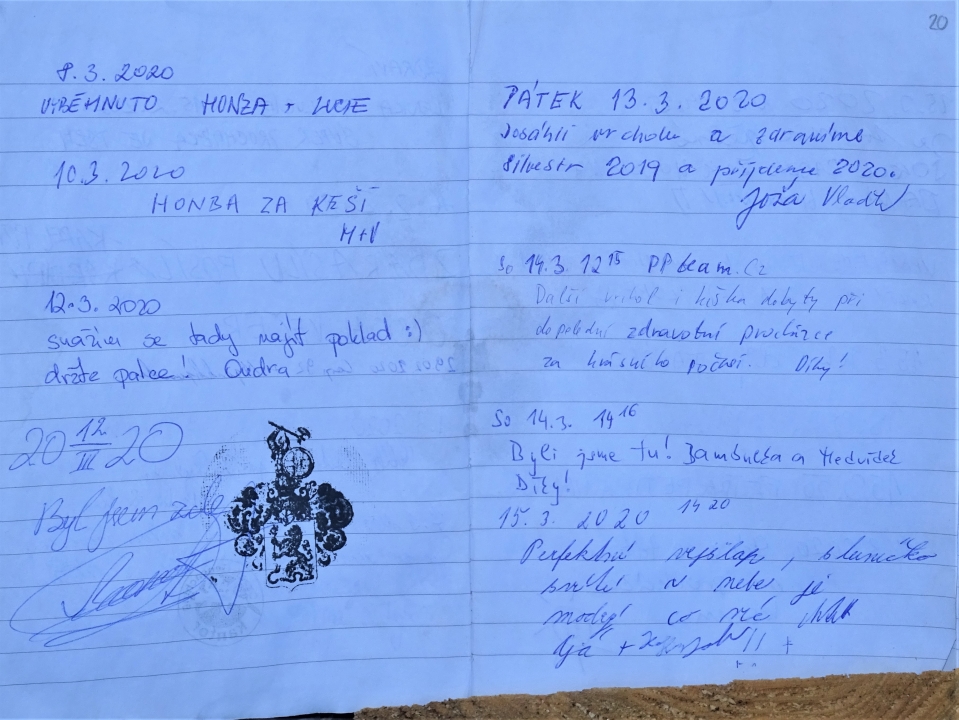 8.3.2020
VYBĚHNUTO HONZA + LUCIE
10.3.2020
HONBA ZA KEŠÍ
M+V
12.3.2020
snažím se tady najít poklad :)
držte palce! Ondra
20 12/III 20
Byl jsem zde
20
PÁTEK 13.3.2020
Dosáhli vrcholu a zdravíme
Silvestr 2019 a přijdeme 2020.
Joža
So 14.3. 12 15 PPteam.cz
Další vrchol i kiška dobyty při
dopolední zdravotní procházce
za krásného počasí. Díky!
So 14.3. 14 16
Byli jsme tu! Bambulka a Medvídek
Díky!
15.3.2020 14 20
Perfektní výšlap, sluníčko
svítí a nebe je
modrý co víc